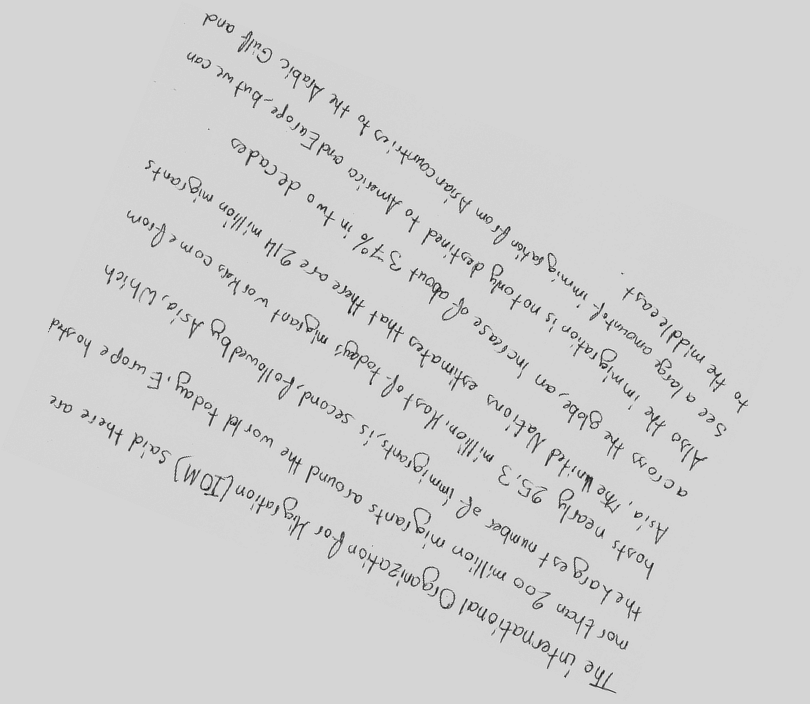 The international Organization for Migration (IOM) said there are
mor than 200 million migrants around the world today. Europe hosted
the Largest number of immigrants, is second, followed by Asia, which
hosts nearly 25,3 million. Most of today's migrant workers come from
Asia, the united Nations estimates that there are 214 million migrants
across the globe, an increase of about 37% in two decades
Also the immigration is not only destined to America and Europe, but we can
see a large amount of immigration from Asian countries to the Arabic Gulf and
to the middle east.